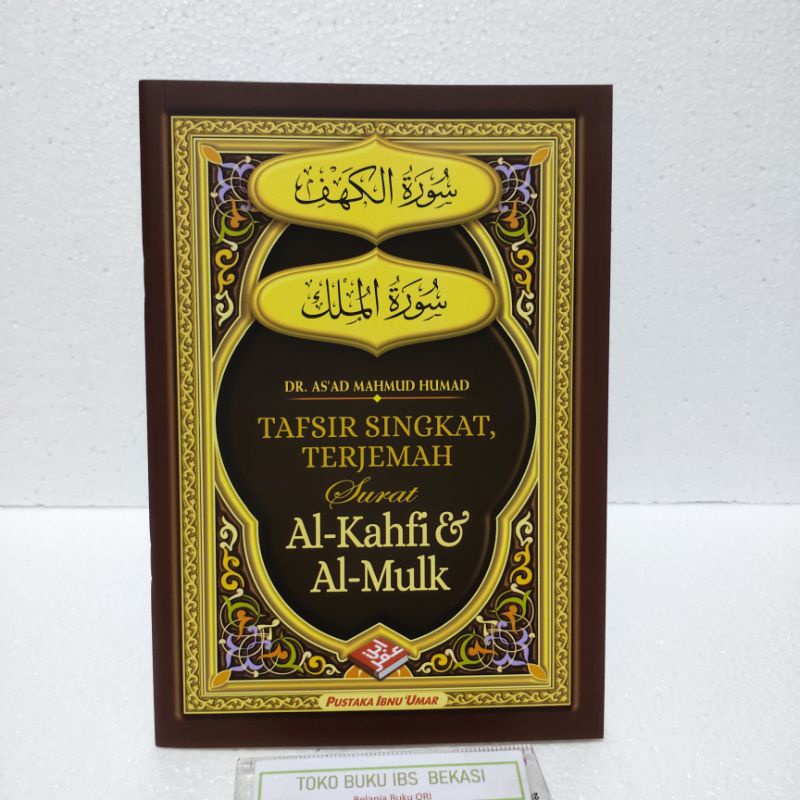 سُورَةُ الكَهْف
سُورَةُ المُلك
DR. AS'AD MAHMUD HUMAD
TAFSIR SINGKAT,
TERJEMAH
Surat
Al-Kahfi &
Al-Mulk
PUSTAKA IBNU 'UMAR
TOKO BUKU IBS BEKASI
Belanja Buku ORI